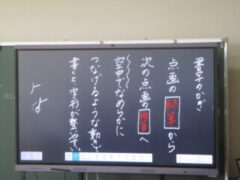 書写のかぎ
点画の終筆から
次の点画の始筆へ
空中でなめらかに
つなげるような動きで
書くと、字形が整いやすい。